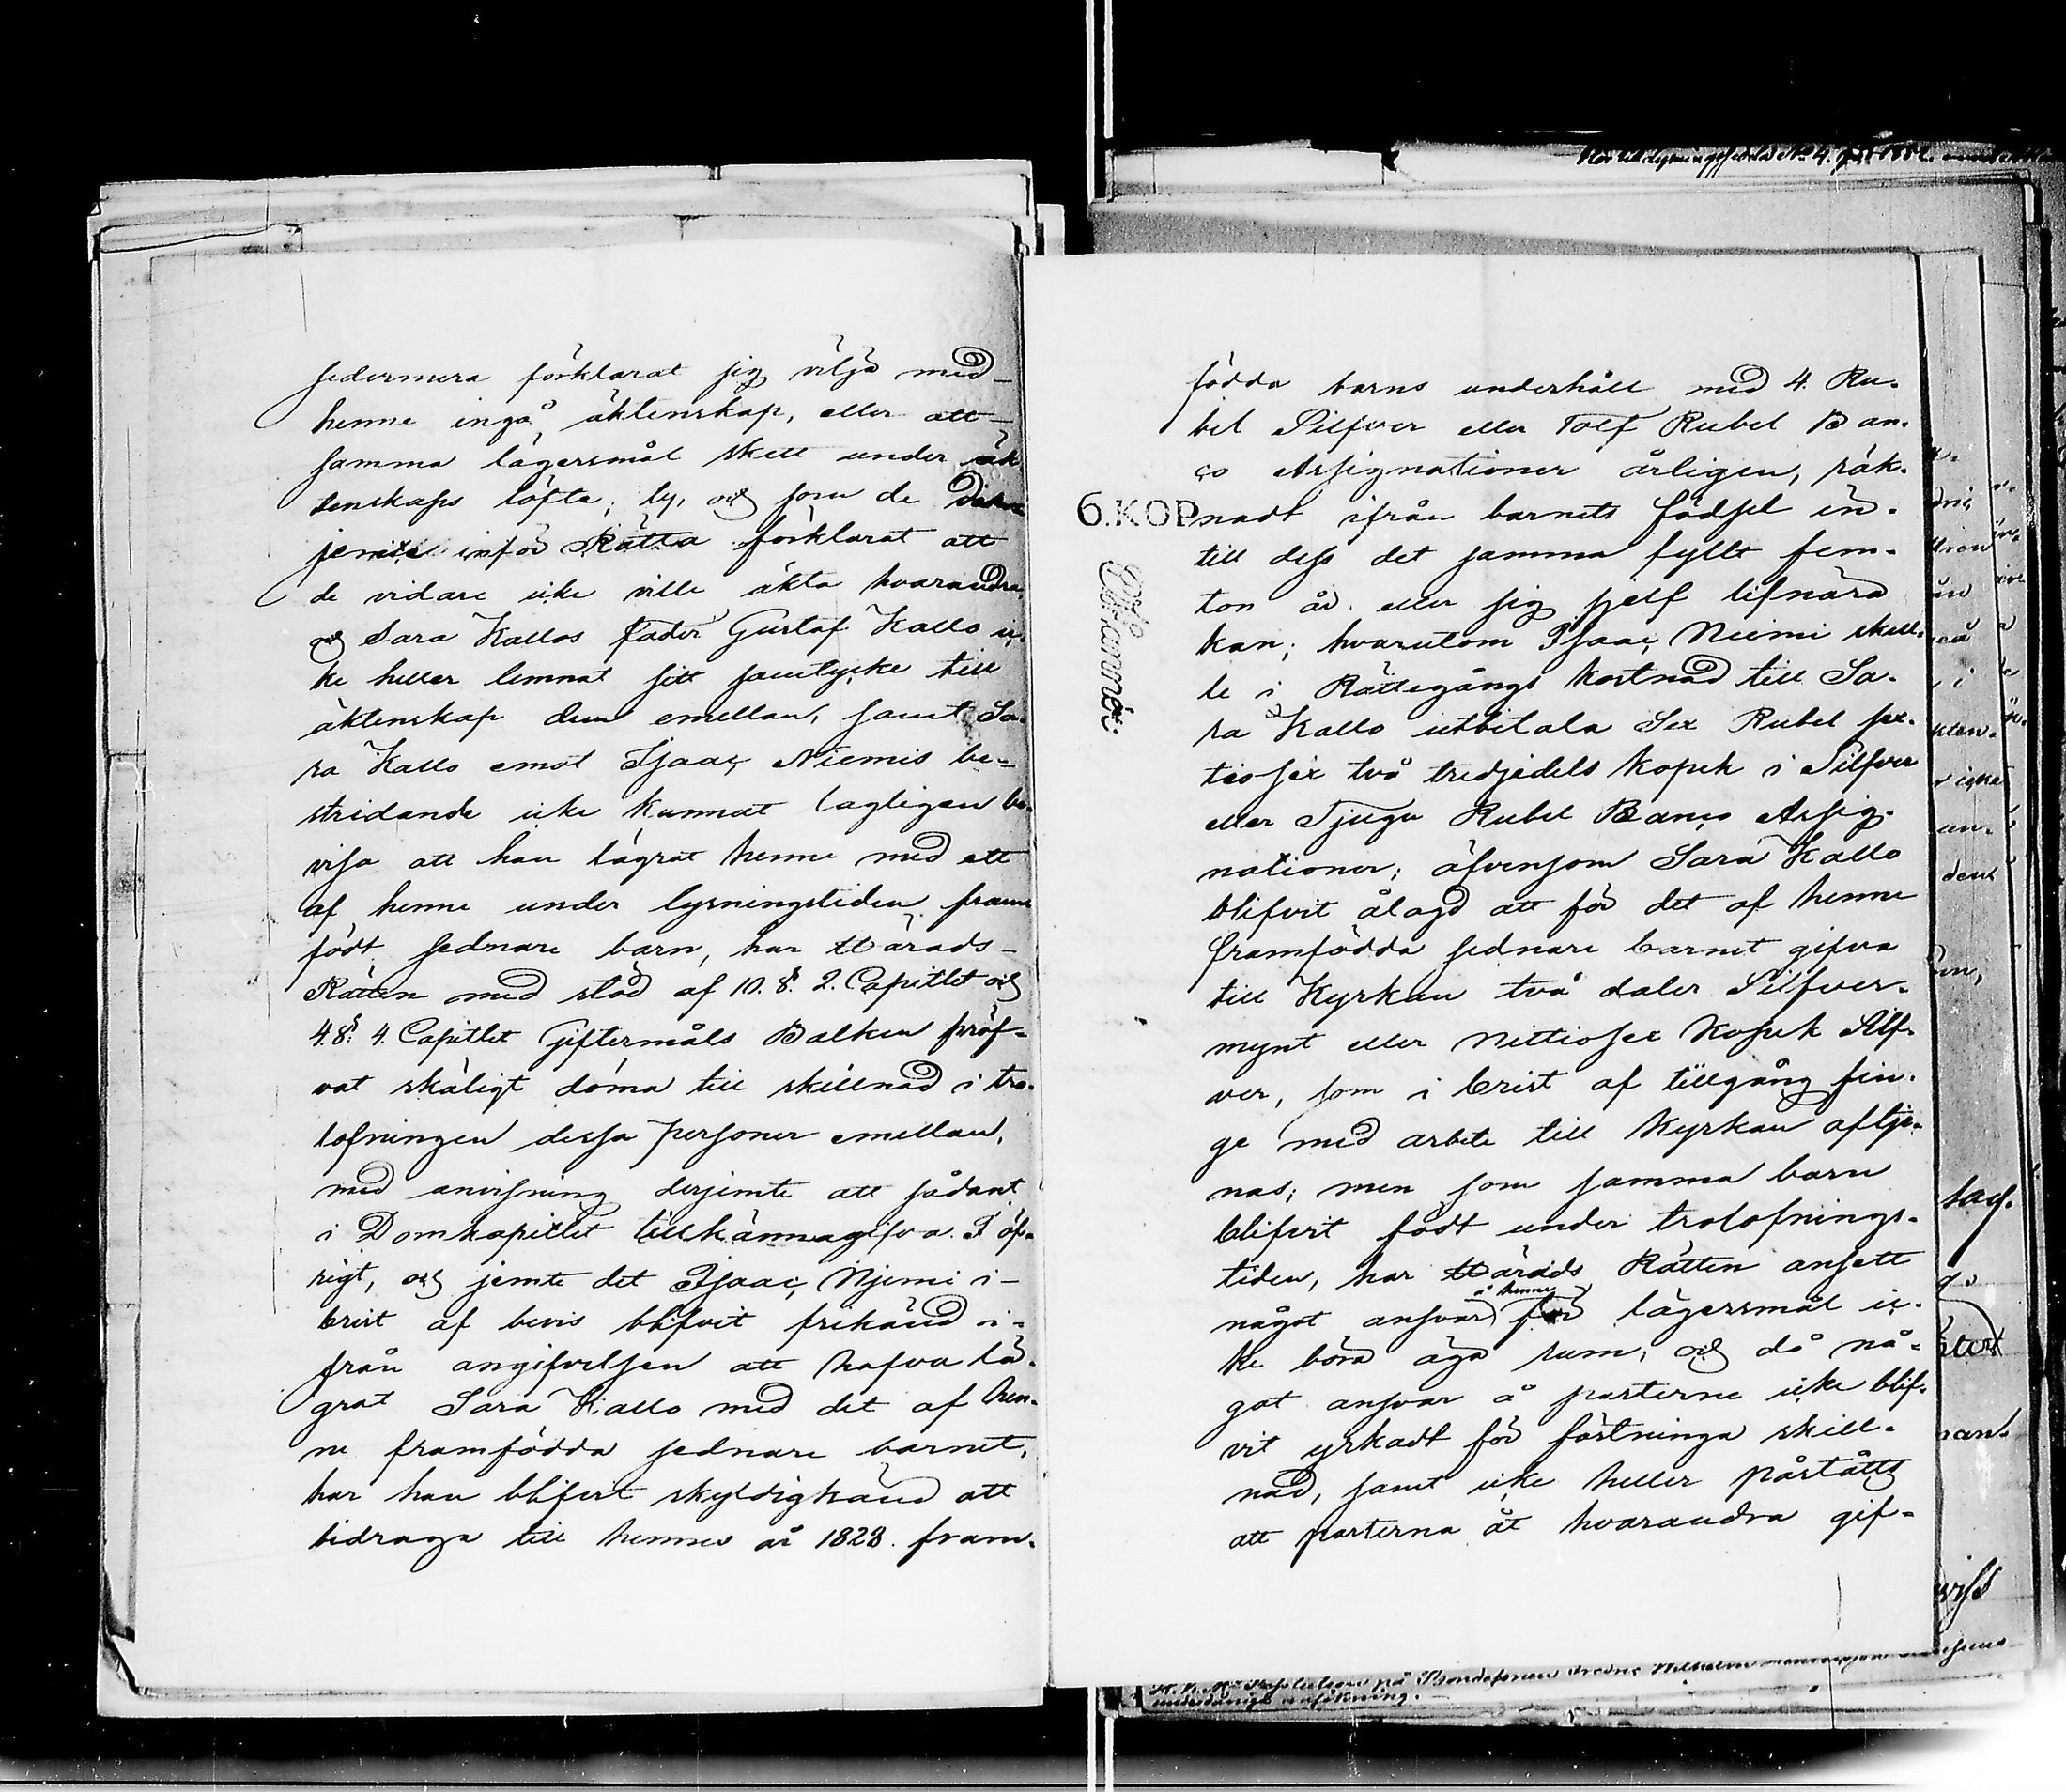 sedermera förklarat sig vilja med
henne ingå äktenskap, eller att
samma lägersmål skett under äk
tenskaps löfte; ty, och som de
jemte inför Rätta förklarat att
de vidare icke ville äkta hvarandra,
och Sara Kallos fader Gustaf Kallo ic-
ke heller lemnat sitt samtycke till
äktenskap dem emellan, samt Sa-
ra Kallo emot Isaac Niemis be-
stridande icke kunnat lagligen be-
visa att han lägrat henne med ett
af henne under lysningstiden fram
födt sednare barn, har Härads-
Rätten med stöd af 10. §. 2. Capitlet och
4. §. 4. Capitlet Giftermåls Balken pröf-
vat skäligt döma till skillnad i tro-
lofningen dessa personer emellan,
med anvisning derjemte att sådant
i Domkapitlet tillkännagifva. I öf-
rigt, och jemte det Isaac Njemi i
brist af bevis blifvit frikänd i-
från angifvelsen att hafva lä-
grat Sara Kallo med det af hen-
ne framfödda sednare barnet,
har han blifvit skyldigkänd att
bidraga till hennes år 1828. fram-
födda barns underhåll med 4. Ru-
bel Silfver eller Tolf Rubel Ban-
co Assignationer årligen, räk-
6.KOP
nadt ifrån barnets födsel in-
till dess det samma fyllt fem-
ton år eller sig sjelf lifnära
kan; hvarutom Isaac Niemi skul-
le i Rättegångs kostnad till Sa-
ra Kallo utbetala Sex Rubel sex-
tiosex två tredjedels kopek i Silfver
eller Tjugu Rubel Banco Assig-
nationer; äfvensom Sara Kallo
blifvit ålagd att för det af henne
framfödda sednare barnet gifva
till Kyrkan två daler Silfver-
mynt eller Nittiosex kopek Silf-
ver, som i brist af tillgång fin-
ge med arbete till Kyrkan aftje-
nas; men som samma barn
blifvit födt under trolofnings-
tiden, har Härads Rätten ansett
något ansvar å henne för lägersmål ic-
ke böra äga rum; och då nå-
got ansvar å parterne icke blif-
vit yrkadt för fästninga skill-
nad, samt icke heller påståtts
att parterna åt hvarandra gif-